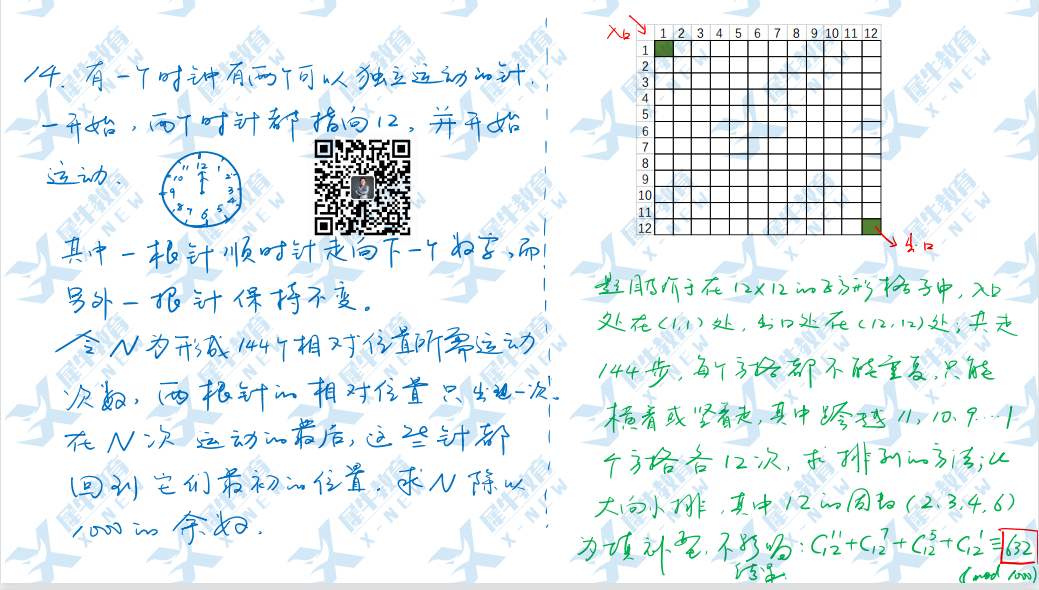 14. 有一个时钟有两个可以独立运动的针.
一开始,两个时针都指向12,并开始
运动.
12 1 2 3 4 5 6 7 8 9 10 11
其中一根针顺时针走向下一个数字,而
另外一根针保持不变。
令N为形成144个相对位置所需运动
次数,两根针的相对位置只出现一次.
在N次运动的最后,这些针都
回到它们最初的位置.求N除以
1000的余数.
入口
1 2 3 4 5 6 7 8 9 10 11 12
1
2
3
4
5
6
7
8
9
10
11
12
出口
题目等价于在12×12的方形格子中,入口
处在(1,1)处,出口处在(12,12)处,共走
144步,每个方格都不能重复,只能
横着或竖着走,其中跨越11,10,9…1
个方格各12次,求排列的方法;从
大向小排,其中12的因数(2,3,4,6)
为填补型,不影响
结果
:C₁₂¹¹+C₁₂⁷+C₁₂⁵+C₁₂¹≡632
(mod 1000)
犀牛教育
X-NEW